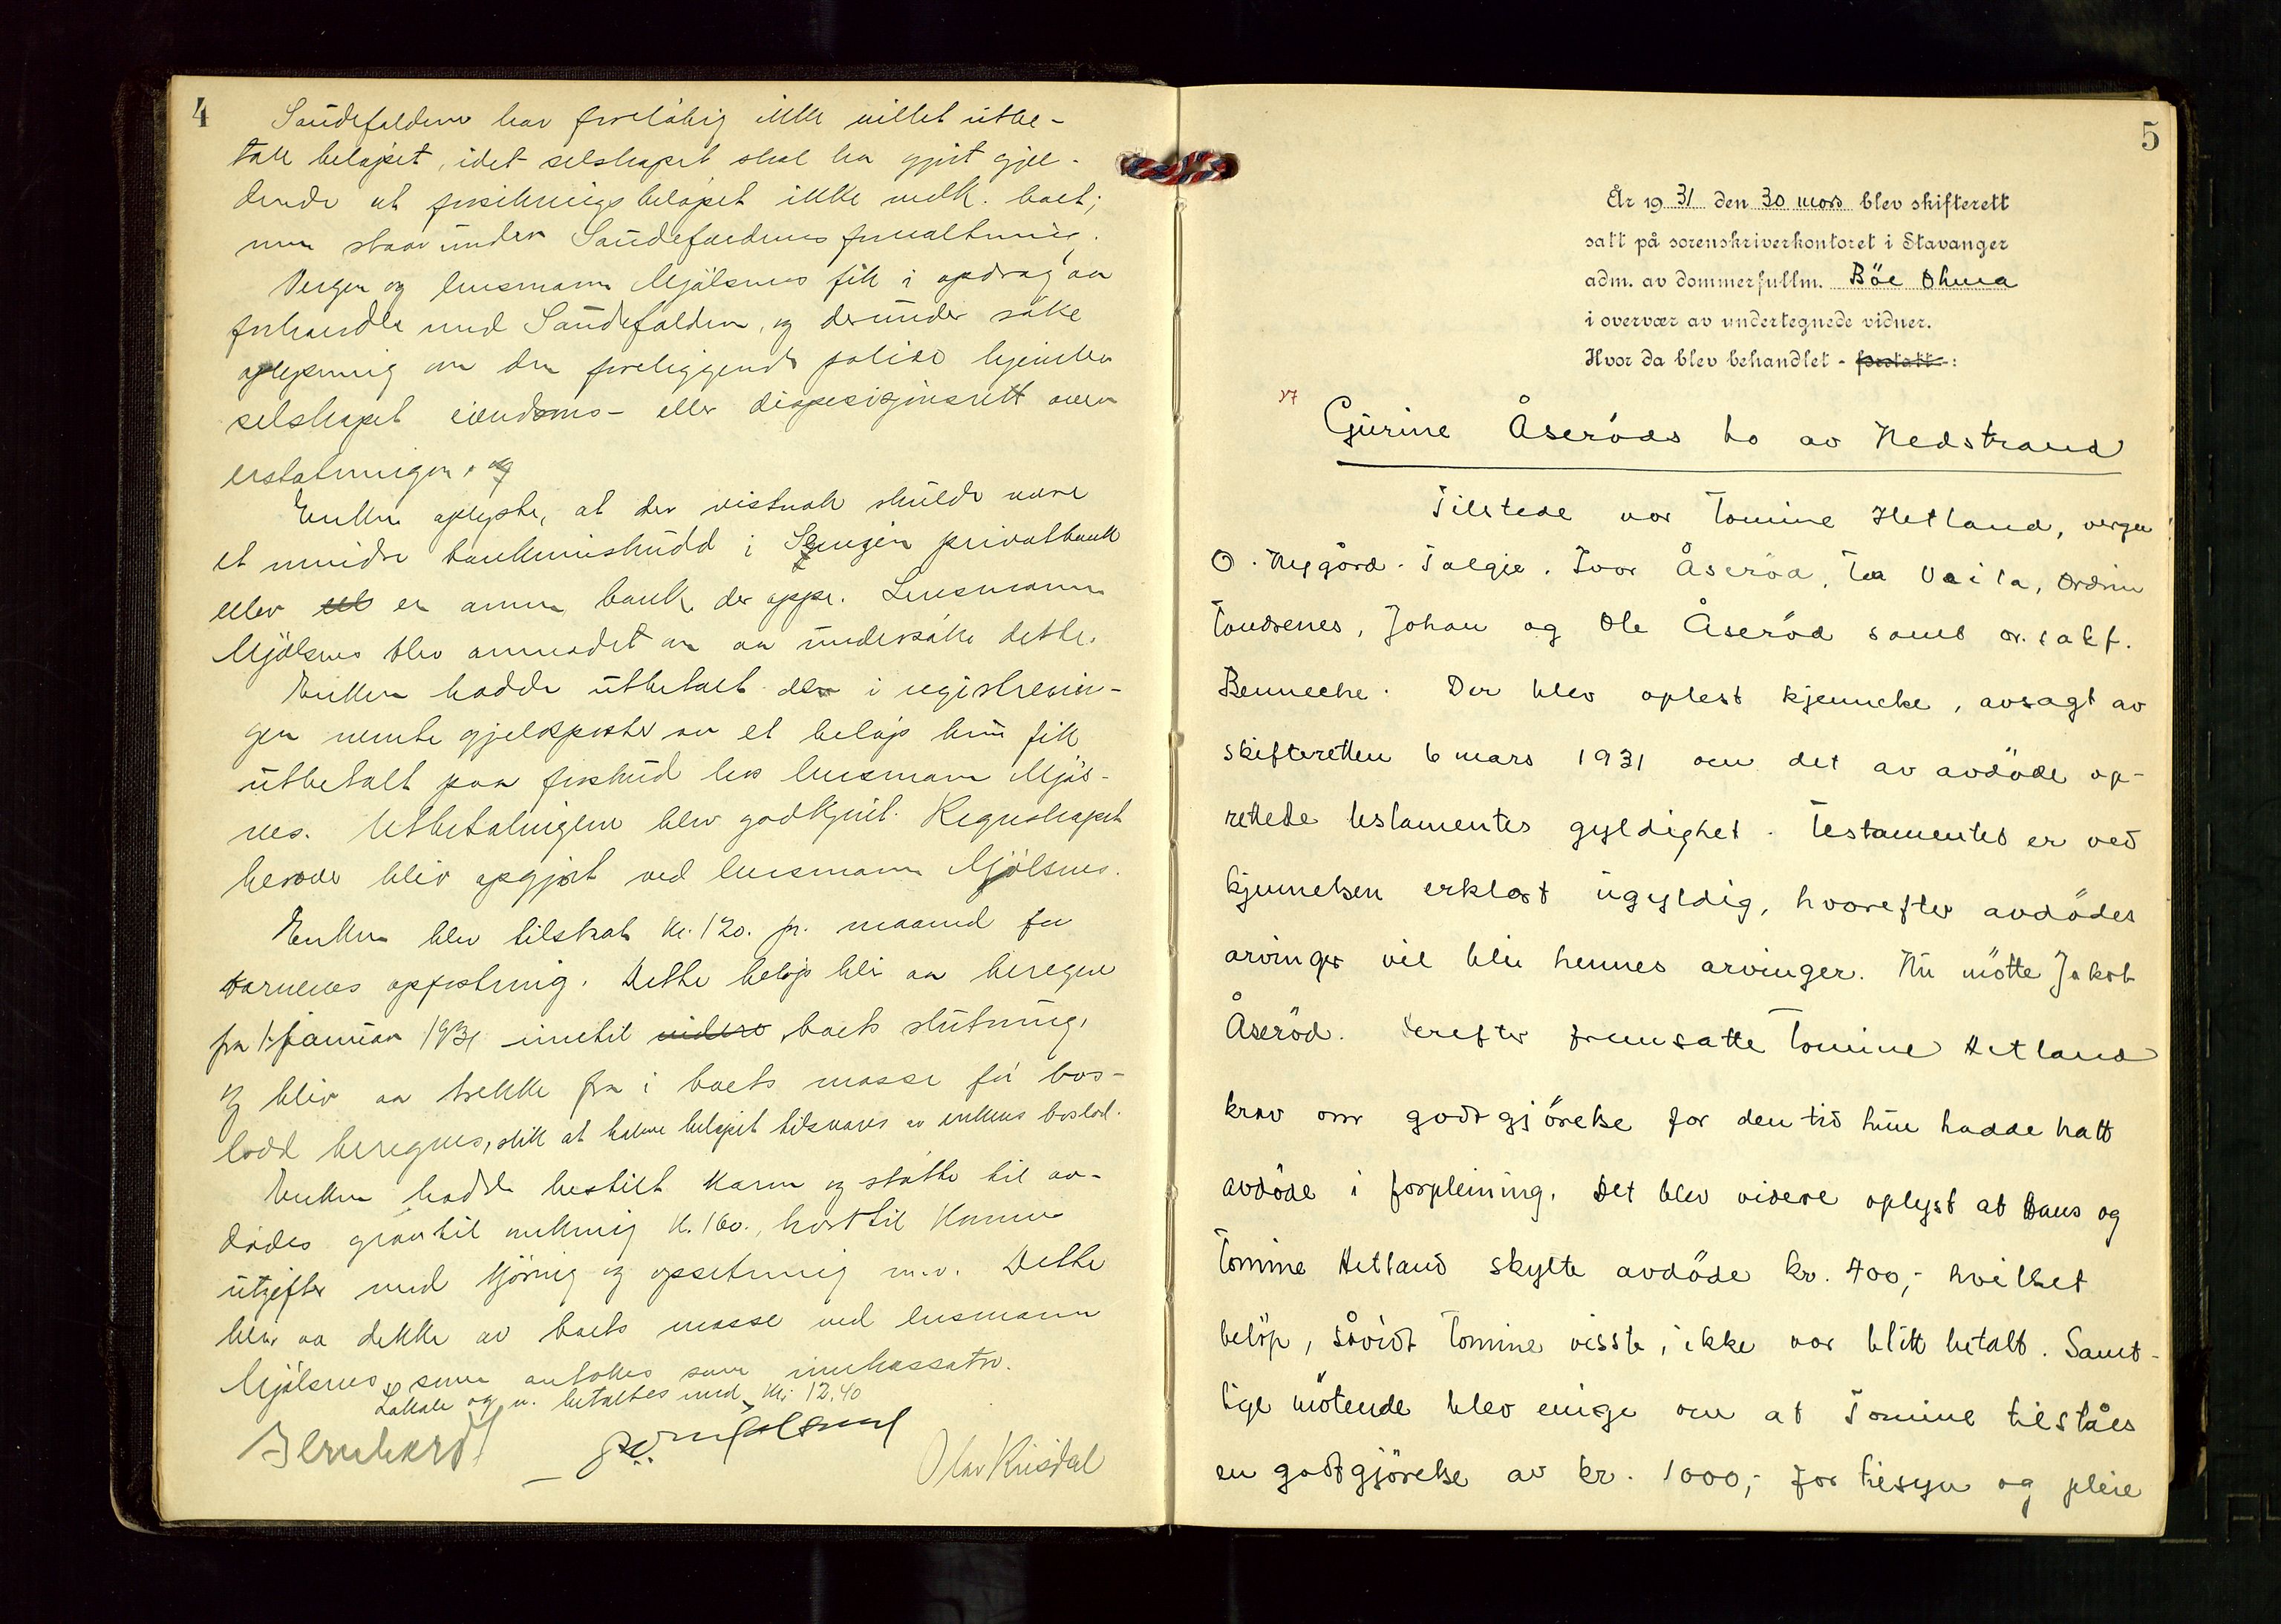 4
Saudefaldene har foreløbig ikke villet utbe-
tale beløpet, idet selskapet skal ha gjort gjel-
dende at forsikringsbeløpet ikke vedk. boet;
men staar under Saudefaldenes forvaltning.
Vergen og lensmann Mjølsnes fik i opdrag aa
forhandle med Saudefaldene, og derunder søke
oplysning om den foreliggende polise hjemler
selskapet eiendoms- eller disposisjonsrett over
erstatningen. og
Enken oplyste, at der vistnok skulde være
et mindre bankinnskudd i privatbank
eller en annen bank der oppe. Lensmann
Mjølsnes blev anmodet om aa undersøke dette.
Enken hadde utbetalt de i registrerin-
gen nevnte gjeldsposter av et beløp hun fikk
utbetalt paa forskud hos lensmann Mjøls-
nes. Utbetalingene blev godkjent. Regnskapet
herover blir opgjort ved lensmann Mjølsnes.
Enken blev tilstaat kr. 120. pr. maaned for
barnenes opfostring. Dette beløp blir aa beregne
fra 1. januar 1931 inntil videre boets slutning,
og blir aa trekke fra i boets masse før bos-
lodd beregnes, slik at halve beløpet tilsvares av enkens boslod.
Enken hadde bestilt karm og støtte til av-
dødes grav til omkring kr. 160., hvortil kommer
utgifter med kjøring og opsetning m.v. Dette
blir aa dekke av boets masse ved lensmann
Mjølsnes, som antokes som innkassator.
Lokale og v. betaltes med kr. 12,40
Olav Riisdal
5
År 1931 den 30 mars blev skifterett
satt på sorenskriverkontoret i Stavanger
adm. av dommerfullm. Böe Ohma
i overvær av undertegnede vidner.
Hvor da blev behandlet - fortsatt -:
Gjurine Åseröds bo av Nedstrand
Tilstede var Tomine Hetland, vergen
O. Nygård. Talgje. Ivar Åseröd, Tea Vaila,
Tendsenes, Johan og Ole Åseröd samt or. sakf.
Bennecke. Der blev oplest kjennelse, avsagt av
skifteretten 6 mars 1931 om det av avdöde op-
rettede testamentes gyldighet. Testamentet er ved
kjennelsen erklært ugyldig, hvorefter avdödes
arvinger vil bli hennes arvinger. Nu mötte Jakob
Åseröd. Derefter fremsatte Tomine Hetland
krav om godtgjörelse for den tid hun hadde hatt
avdöde i forpleining. Det blev videre oplyst at Hans og
Tomine Hetland skylte avdöde kr. 400,- hvilket
belöp, såvidt Tomine visste, ikke var blitt betalt. Samt-
lige mötende blev enige om at Tomine tilståes
en godtgjörelse av kr. 1000,- for tilsyn og pleie